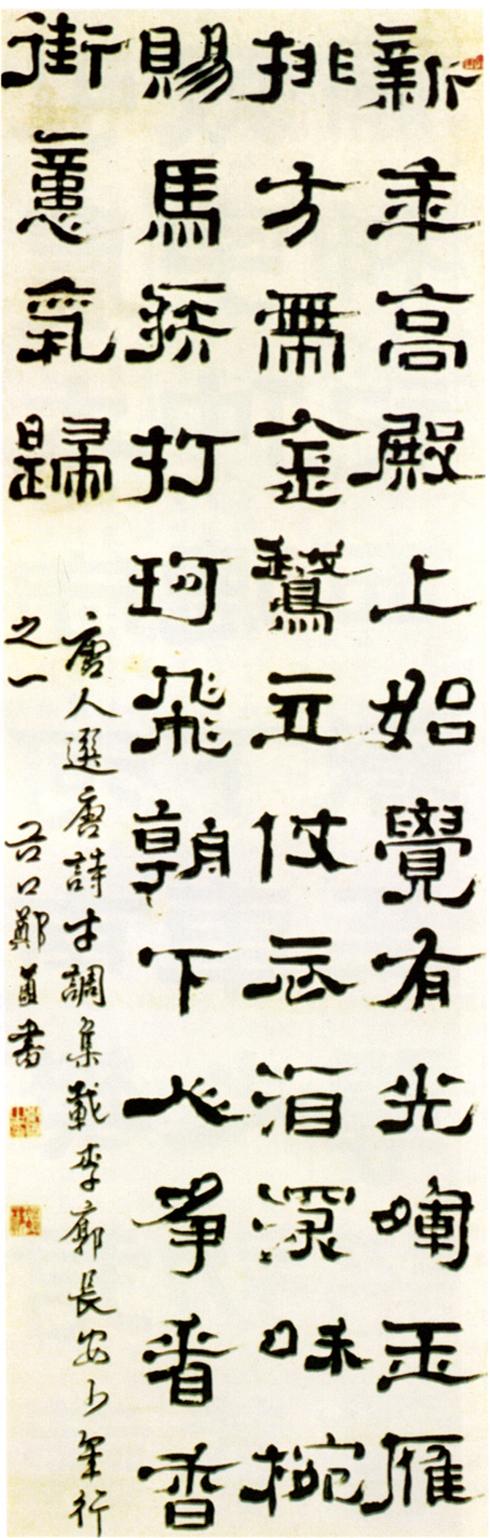 新秊高殿上始覺有光暉玉雁
排方帶金鵞立仗衣酒深咊椀
賜馬疾打珂飛朝下人爭看香
街意氣歸
唐人選唐詩才調集載李廓長安少年行
之一
谷口鄭簠書